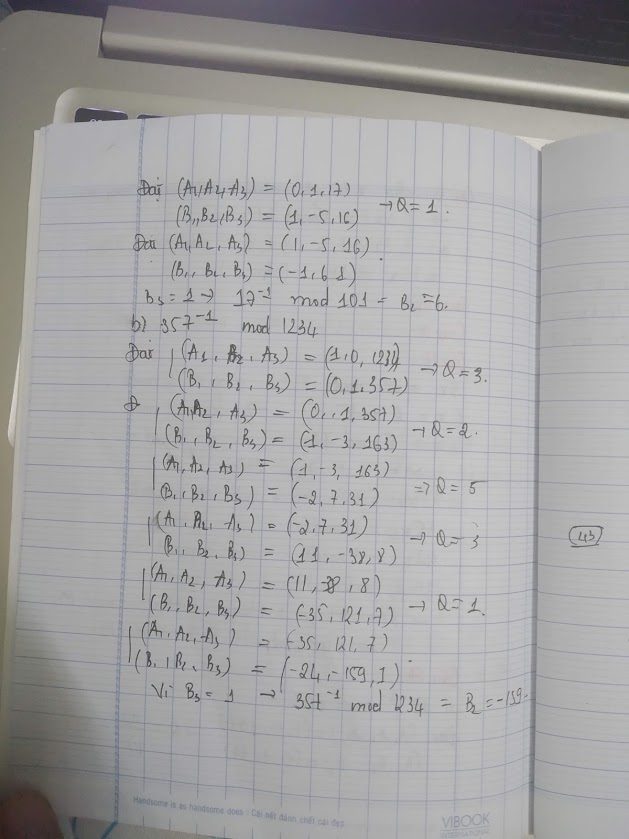 Đặt (A1, A2, A3) = (0, 1, 17)
(B1, B2, B3) = (1, -5, 16) → Q = 1.
Đặt (A1, A2, A3) = (1, -5, 16)
(B1, B2, B3) = (-1, 6 1)
B3 = 1 → 17⁻¹ mod 101 = B2 = 6.
b) 357⁻¹ mod 1234
Đặt (A1, A2, A3) = (1, 0, 1234) → Q = 3.
(B1, B2, B3) = (0, 1, 357)
(A1, A2, A3) = (0, 1, 357)
(B1, B2, B3) = (1, -3, 163) → Q = 2.
(A1, A2, A3) = (1, -3, 163)
(B1, B2, B3) = (-2, 7, 31) ⇒ Q = 5
(A1, A2, A3) = (-2, 7, 31)
(B1, B2, B3) = (11, -38, 8) → Q = 3
(A1, A2, A3) = (11, , 8)
(B1, B2, B3) = (-35, 121, 7) → Q = 1.
(A1, A2, A3) = (-35, 121, 7)
(B1, B2, B3) = (-24, -159, 1)
Vì B3 = 1 → 357⁻¹ mod 1234 = B2 = -159.
43
Handsome is as handsome does : Cái nết đánh chết cái đẹp
VIBOOK